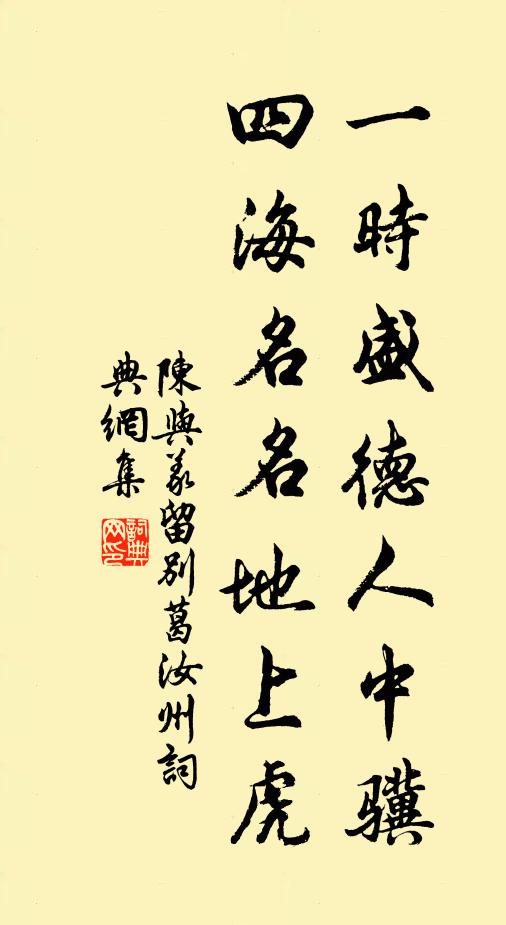 一時盛德人中驥
四海名名地上虎
陳與義留別葛汝州詞
典網集
詞典網印